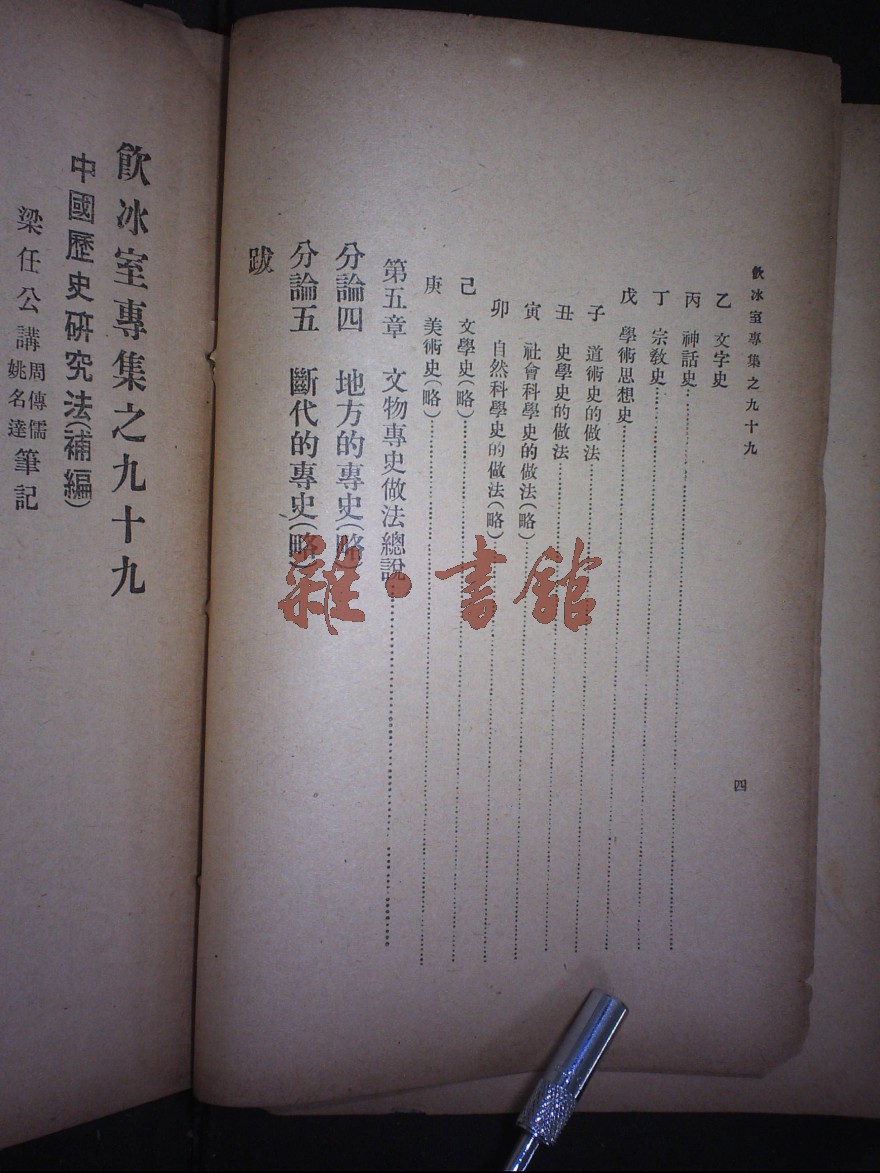 飲冰室專集之九十九
四
乙　文字史
丙　神話史
丁　宗敎史
戊　學術思想史
子　道術史的做法
丑　史學史的做法
寅　社會科學史的做法(略)
卯　自然科學史的做法(略)
己　文學史(略)
庚　美術史(略)
第五章　文物專史做法總說
分論四　地方的專史(略)
分論五　斷代的專史(略)
跋
飮冰室專集之九十九
中國歷史硏究法(補編)
梁任公講　周傳儒　姚名達　筆記
雜·書館